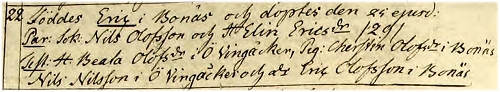 22 Föddes Eric i Bonäs och döptes den 25 ejusd:
Par: Sok: Nils Olofsson och H. Elin Ericsdr /29/
Test: H. Beata Olofsdr i Ö Vingåcker, Pig: Cherstin Olofsdr i Bonäs
Nils Nilsson i Ö Vingåcker och dr Eric Olofsson i Bonäs